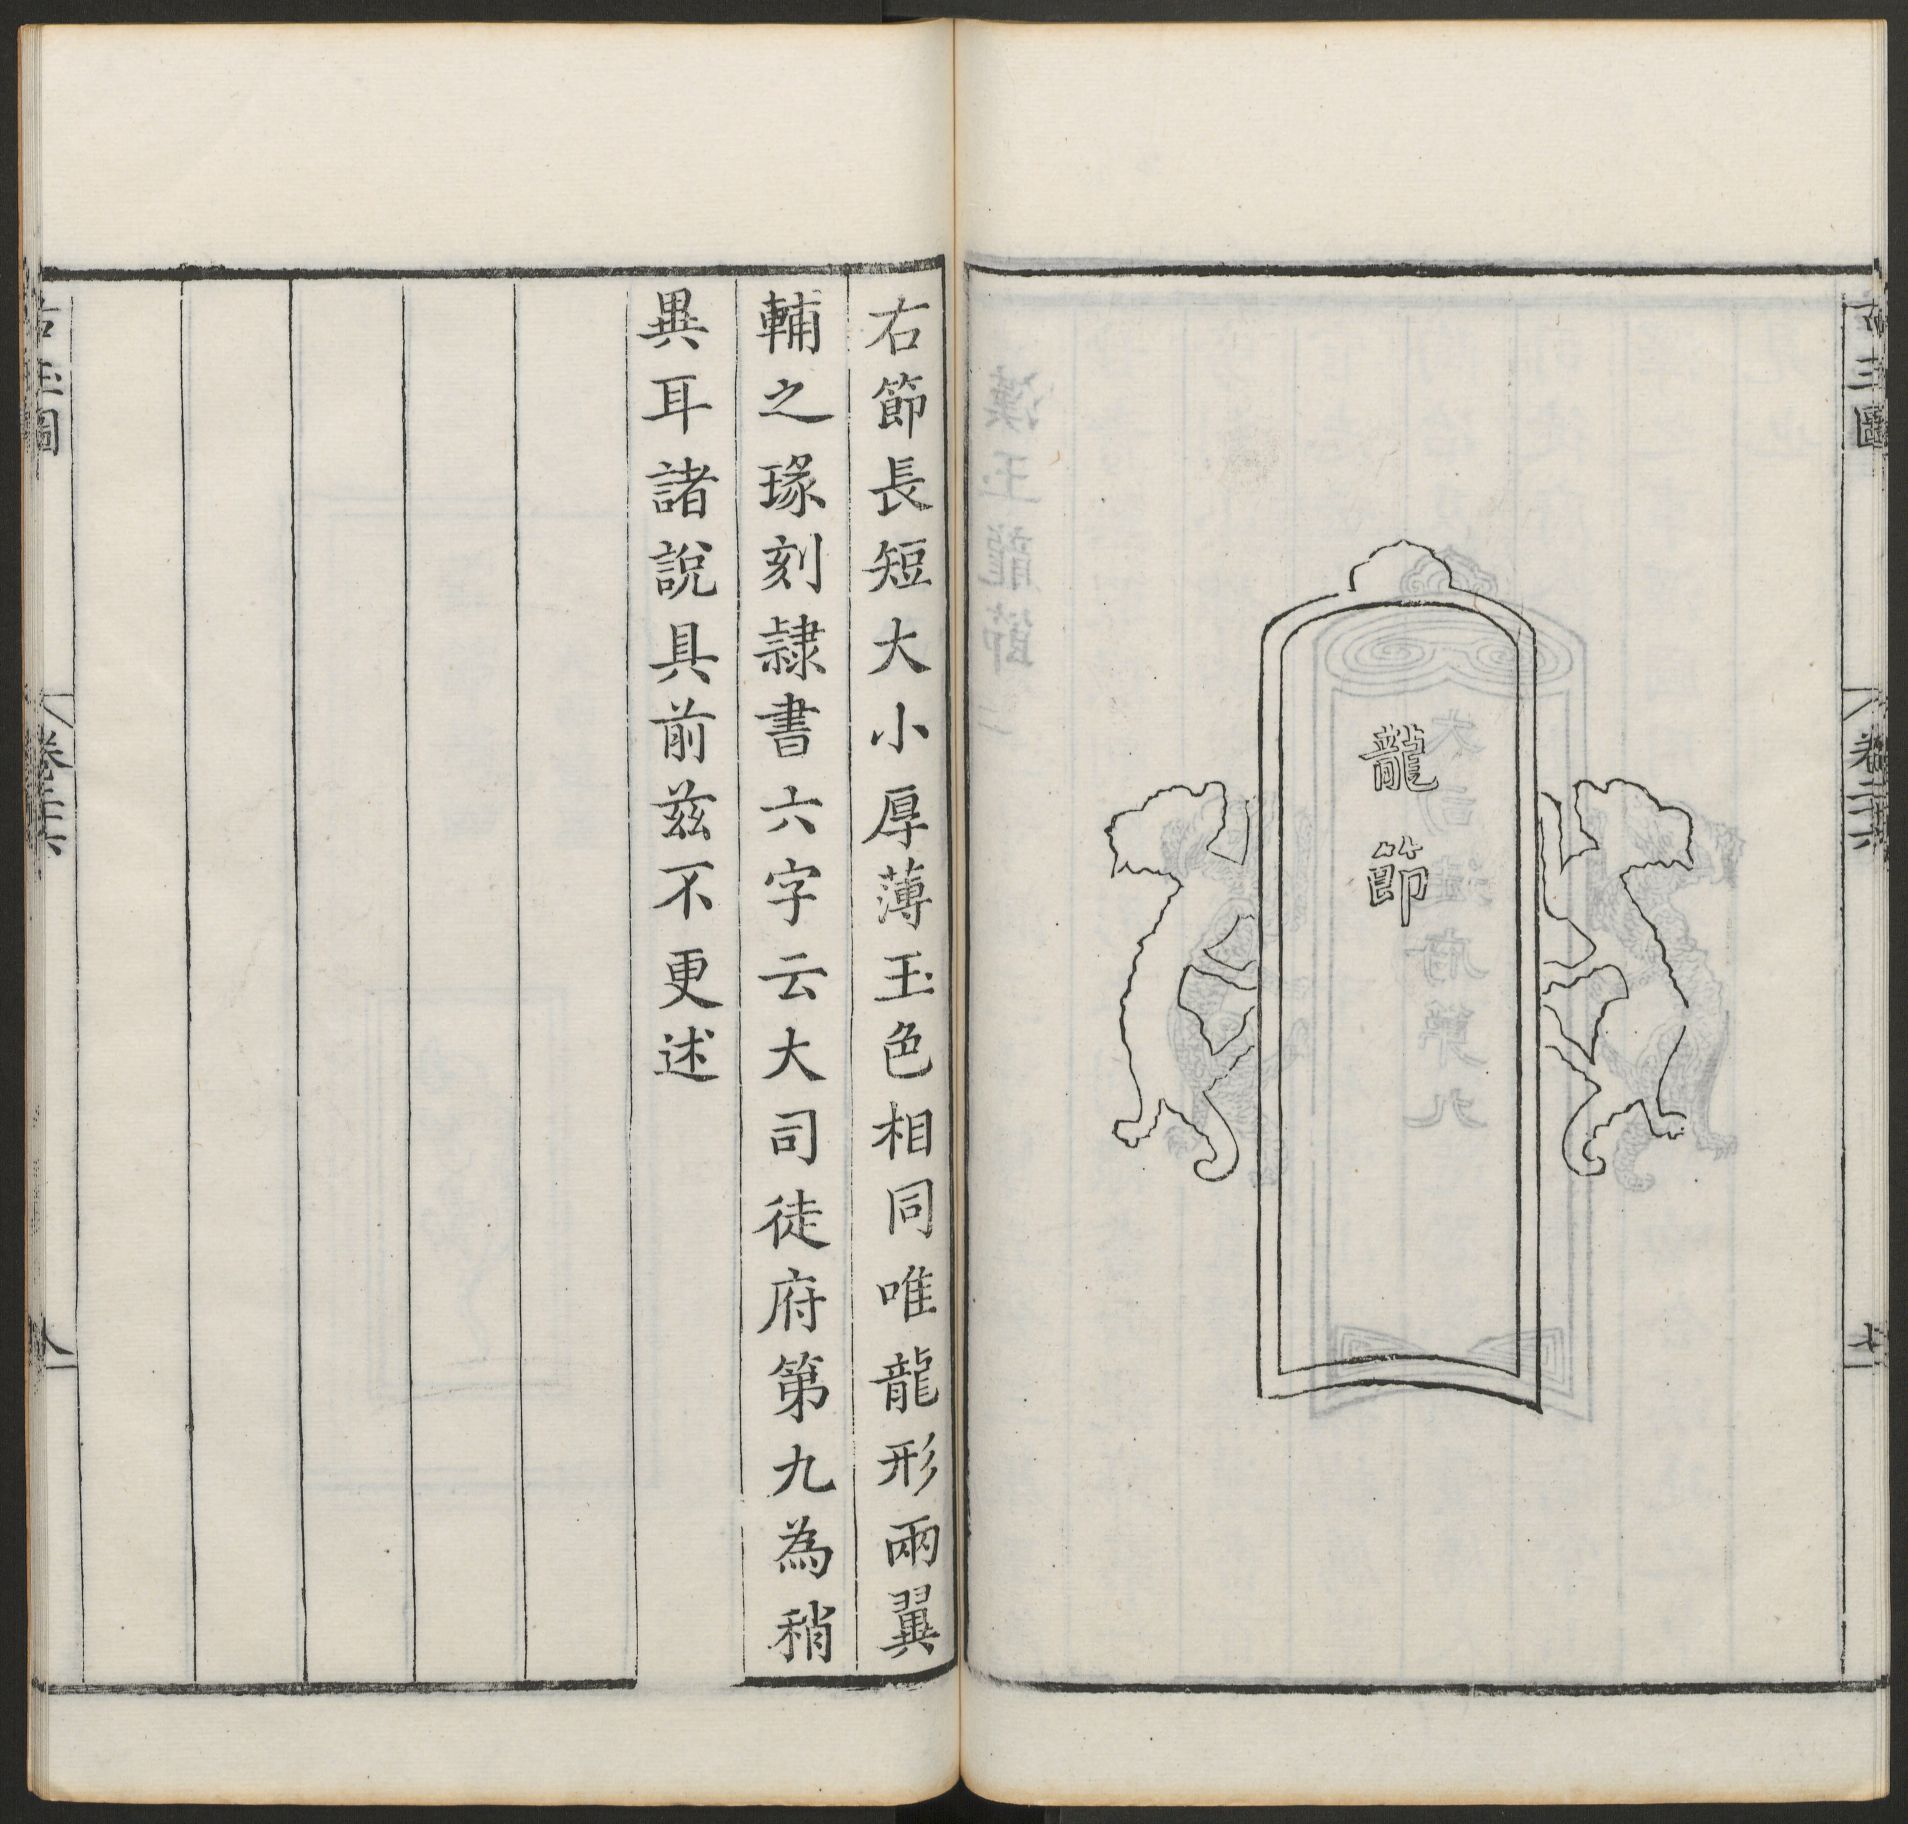 古玉圖
七
龍
節
右節長短大小厚薄玉色相同唯龍形兩翼
輔之琢刻隸書六字云大司徒府第九為稍
異耳諸說具前茲不更述
古玉圖
八